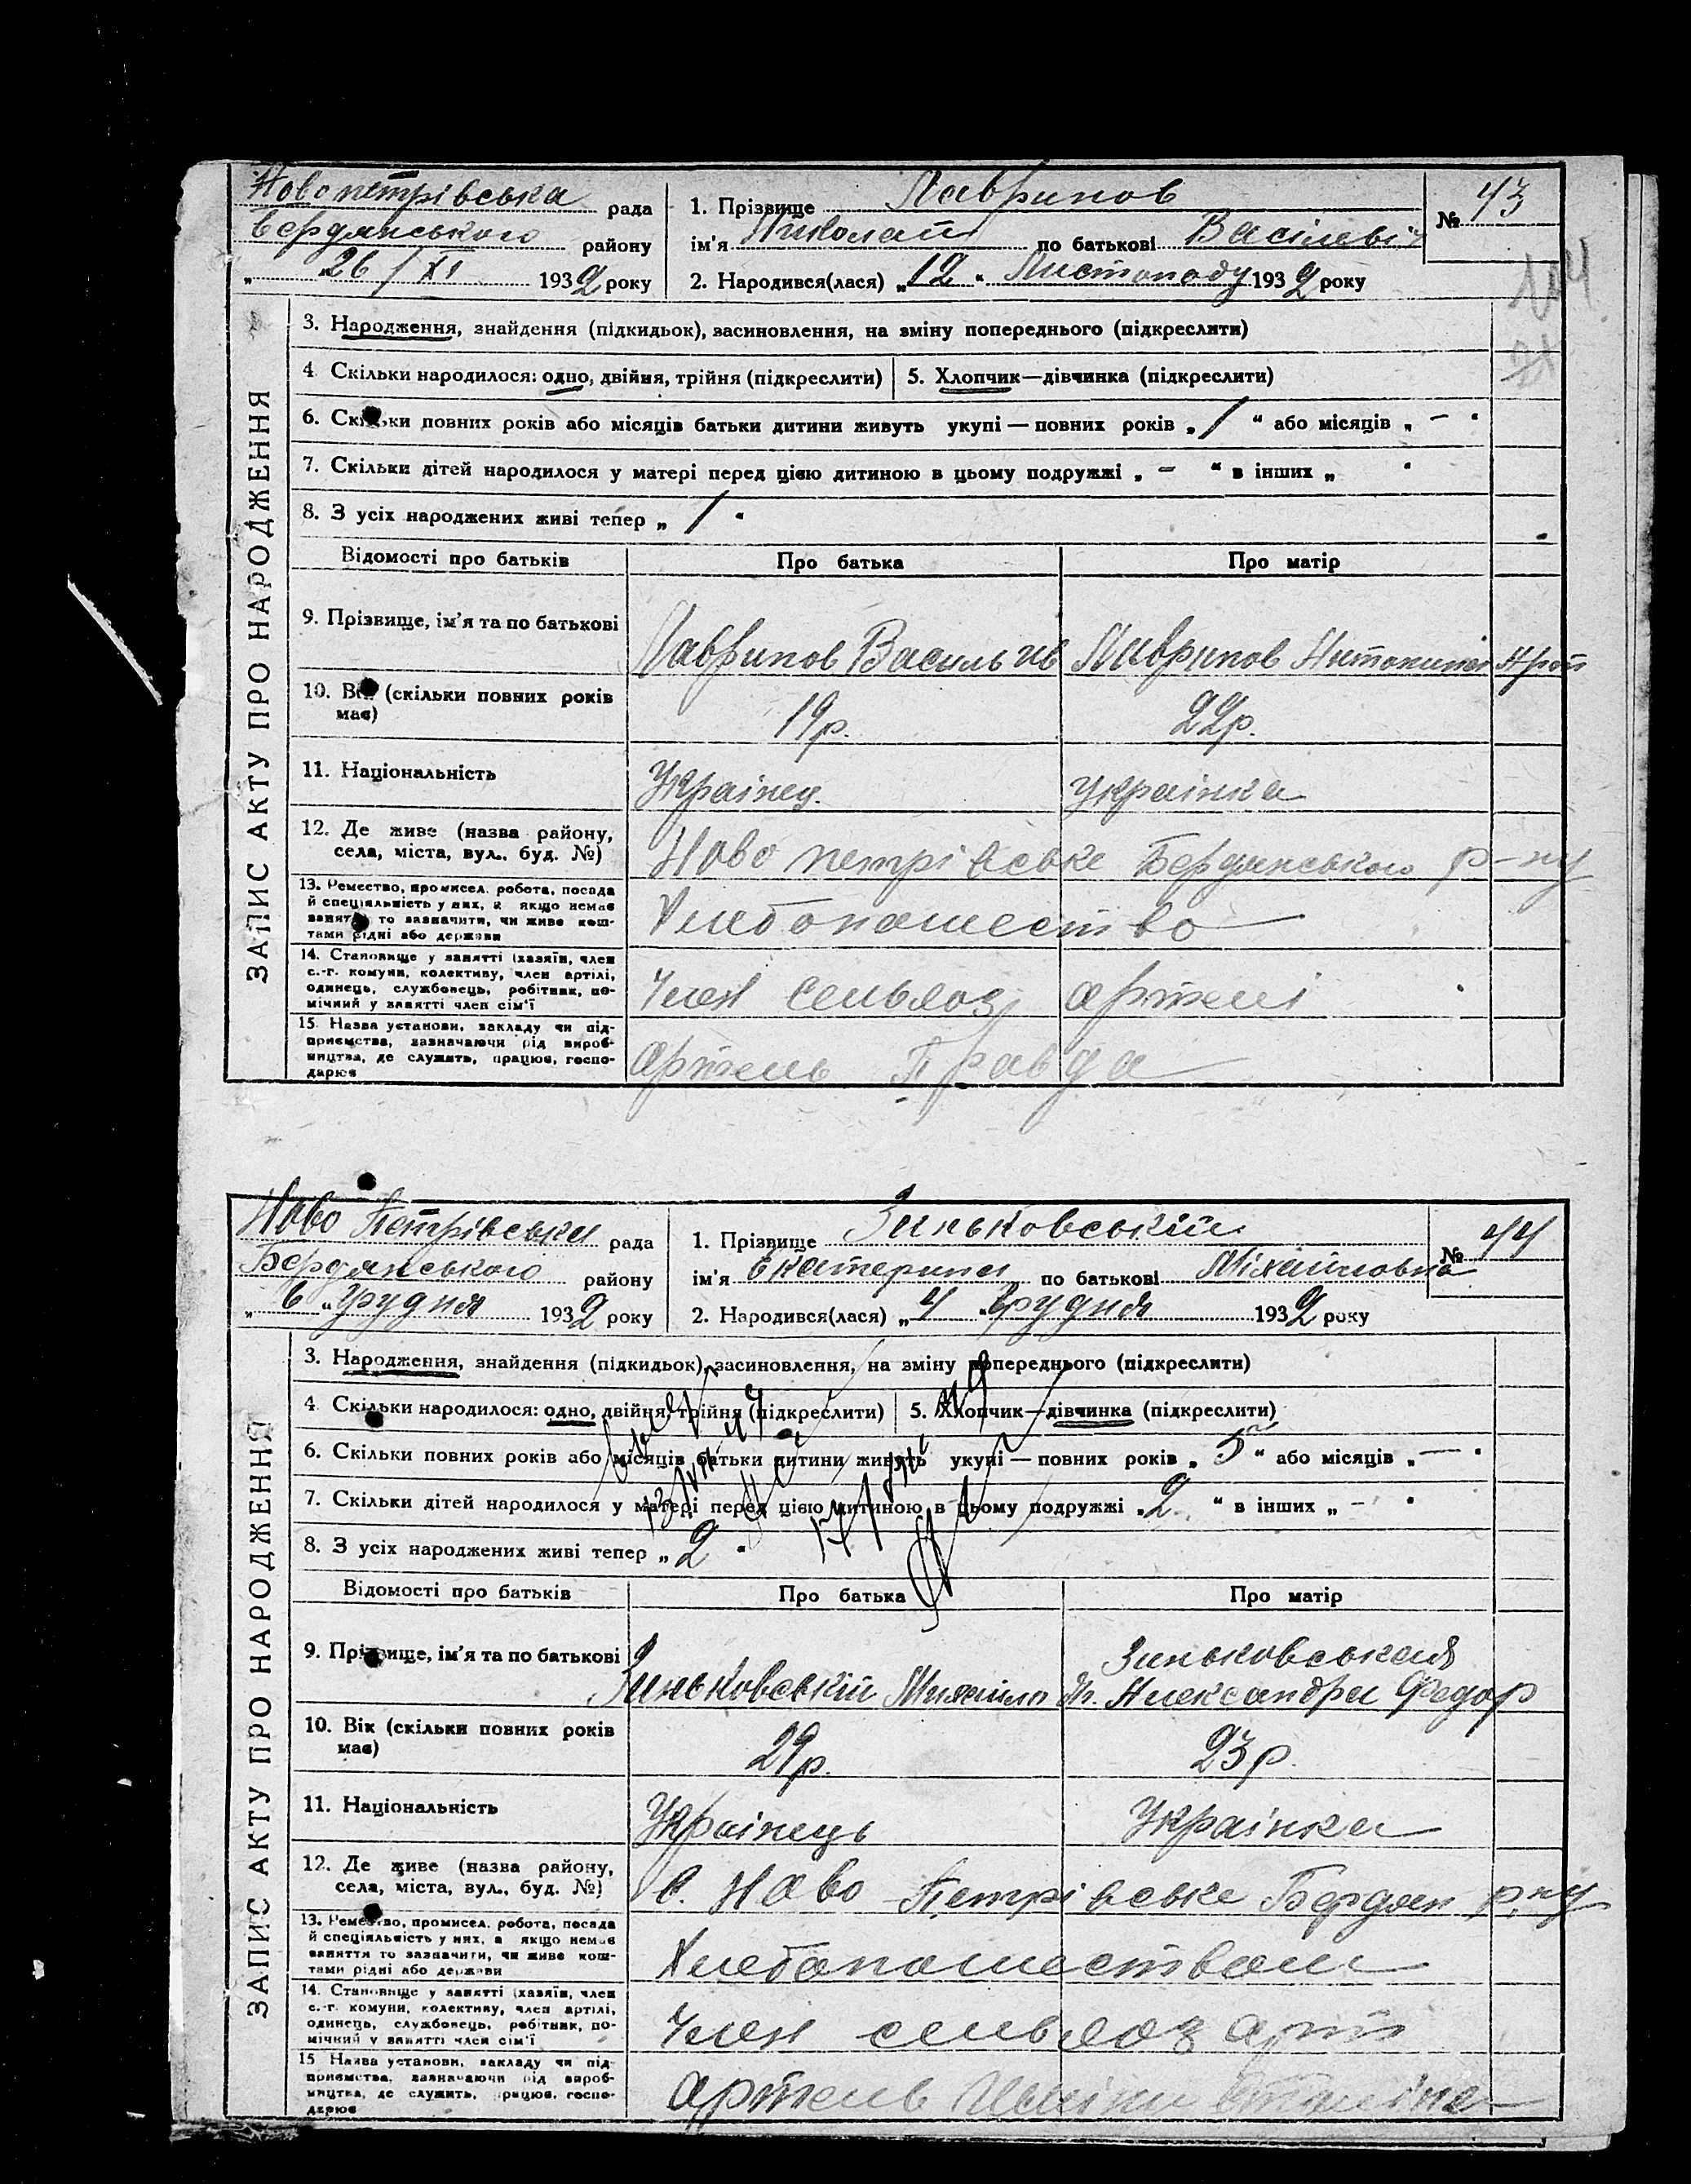 Новопетрівська рада
Бердянського району
„ 26/XI 1932 року
1. Прізвище Лавринов
ім'я Николай по батькові Васілевіч
2. Народився(лася) „12“ Листопаду 1932 року
№ 43
3. Народження, знайдення (підкидьок), засиновлення, на зміну попереднього (підкреслити)
4. Скільки народилося: одно, двійня, трійня (підкреслити)
5. Хлопчик—дівчинка (підкреслити)
6. Скільки повних років або місяців батьки дитини живуть укупі — повних років „ 1 “ або місяців „ — “
7. Скільки дітей народилося у матері перед цією дитиною в цьому подружжі „ – “ в інших „ “
8. З усіх народжених живі тепер „ 1 “
ЗАПИС АКТУ ПРО НАРОДЖЕННЯ
Відомості про батьків Про батька Про матір
9. Прізвище, ім'я та по батькові
Лавринов Василь Ив Лавринов Антонина
10. Вік (скільки повних років
має)
19р. 22р.
11. Національність
Українец. Українка
12. Де живе (назва району,
села, міста, вул., буд. №)
Ново петрівське Бердянського р-ну
13. Ремество, промисел, робота, посада
й спеціяльність у них, а якщо немає
заняття то зазначити, чи живе кош-
тами рідні або держави
Хлебопашество
14. Становище у занятті (хазяїн, член
с.-г. комуни, колективу, член артілі,
одинець, службовець, робітник, по-
мічний у занятті член сім'ї
Член сельхоз артелі
15. Назва установи, закладу чи під-
приємства, зазначаючи рід вироб-
ництва, де служить, працює, госпо-
дарює
Артель Правда
Ново Петрівська рада
Бердянського району
„ 6 “ Грудня 1932 року
1. Прізвище Зиньковський
ім'я Екатерина по батькові Міхайловна
2. Народився(лася) „4“ Грудня 1932 року
№ 44
3. Народження, знайдення (підкидьок), засиновлення, на зміну попереднього (підкреслити)
4. Скільки народилося: одно, двійня, трійня (підкреслити)
5. Хлопчик—дівчинка (підкреслити)
6. Скільки повних років або місяців батьки дитини живуть укупі — повних років „ 5 “ або місяців „ — “
7. Скільки дітей народилося у матері перед цією дитиною в цьому подружжі „ 2 “ в інших „ – “
8. З усіх народжених живі тепер „ 2 “
ЗАПИС АКТУ ПРО НАРОДЖЕННЯ
Відомості про батьків Про батька Про матір
9. Прізвище, ім'я та по батькові
Зиньковський Михаило Зиньковськая
Александра Федор
10. Вік (скільки повних років
має)
29р. 23р.
11. Національність
Українець Українка
12. Де живе (назва району,
села, міста, вул., буд. №)
с. Ново Петрівське Бердян р.ну
13. Ремество, промисел, робота, посада
й спеціяльність у них, а якщо немає
заняття то зазначити, чи живе кош-
тами рідні або держави
Хлебопашеством
14. Становище у занятті (хазяїн, член
с.-г. комуни, колективу, член артілі,
одинець, службовець, робітник, по-
мічний у занятті член сім'ї
Член сельхоз арт
15. Назва установи, закладу чи під-
приємства, зазначаючи рід вироб-
ництва, де служить, працює, госпо-
дарює
Артель Сталіна